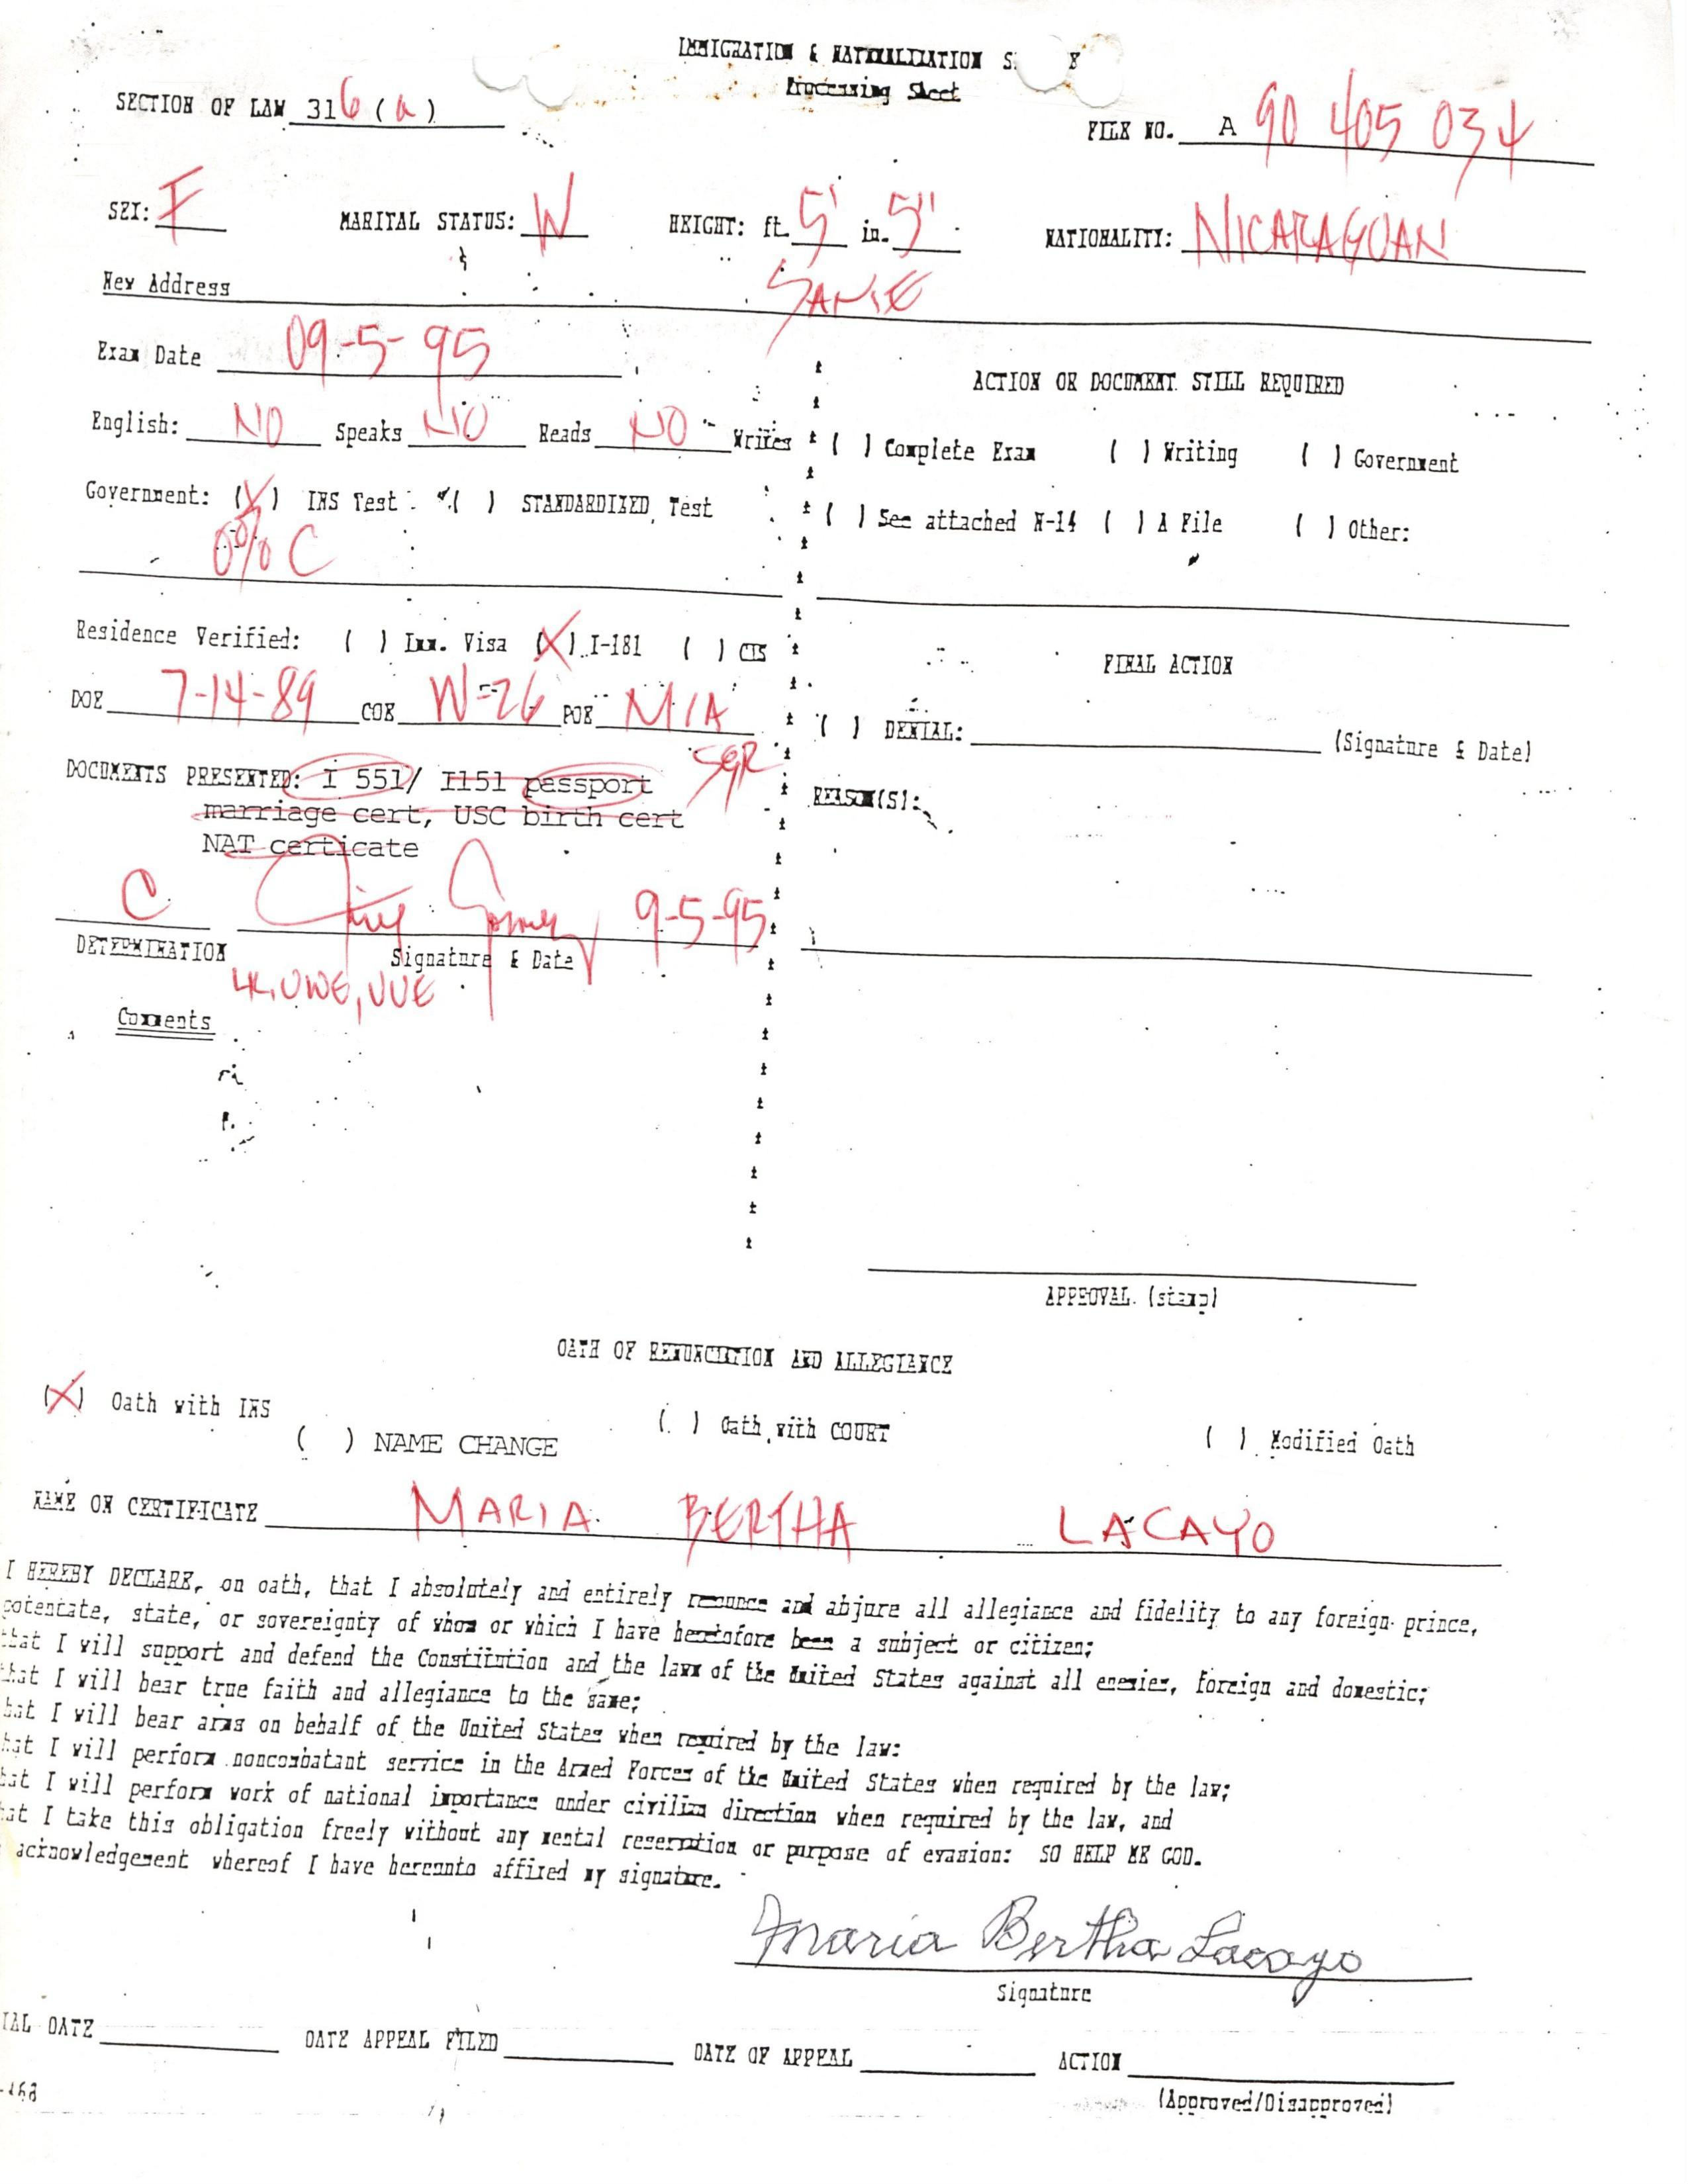 IMMIGRATION & NATURALIZATION S E
Processing Sheet
SECTION OF LAW 316(a)
FILE NO. A 90 405 034
SEX: F MARITAL STATUS: W HEIGHT: ft. 5' in. 5" NATIONALITY: NICARAGUAN
New Address SAME
Exam Date 09-5-95
ACTION OR DOCUMENT STILL REQUIRED
English: NO Speaks NO Reads NO Writes
( ) Complete Exam ( ) Writing ( ) Government
Government: (X) INS Test ( ) STANDARDIZED Test
( ) See attached N-14 ( ) A File ( ) Other:
0% C
Residence Verified: ( ) Imm. Visa (X) I-181 ( ) CIS
FINAL ACTION
DOE 7-14-89 COE W-26 POE MIA
( ) DENIAL: (Signature & Date)
SGR
DOCUMENTS PRESENTED: I 551/ I151 passport
REASON(S):
marriage cert, USC birth cert
NAT certicate
C 9-5-95
DETERMINATION Signature & Date
Comments
APPROVAL (stamp)
OATH OF RENUNCIATION AND ALLEGIANCE
(X) Oath with INS
( ) NAME CHANGE
( ) Oath with COURT
( ) Modified Oath
NAME ON CERTIFICATE MARIA BERTHA LACAYO
I HEREBY DECLARE, on oath, that I absolutely and entirely renounce and abjure all allegiance and fidelity to any foreign prince,
potentate, state, or sovereignty of whom or which I have heretofore been a subject or citizen;
that I will support and defend the Constitution and the laws of the United States against all enemies, foreign and domestic;
that I will bear true faith and allegiance to the same;
hat I will bear arms on behalf of the United States when required by the law:
hat I will perform noncombatant service in the Armed Forces of the United States when required by the law;
hat I will perform work of national importance under civilian direction when required by the law, and
hat I take this obligation freely without any mental reservation or purpose of evasion: SO HELP ME GOD.
acknowledgement whereof I have hereunto affixed my signature.
Maria Bertha Lacayo
Signature
IAL DATE DATE APPEAL FILED DATE OF APPEAL ACTION
(Approved/Disapproved)
-468